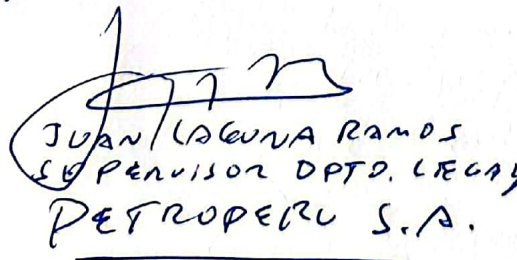 JUAN LAGUNA RAMOS
SUPERVISOR DPTO. LEGAL
PETROPERU S.A.